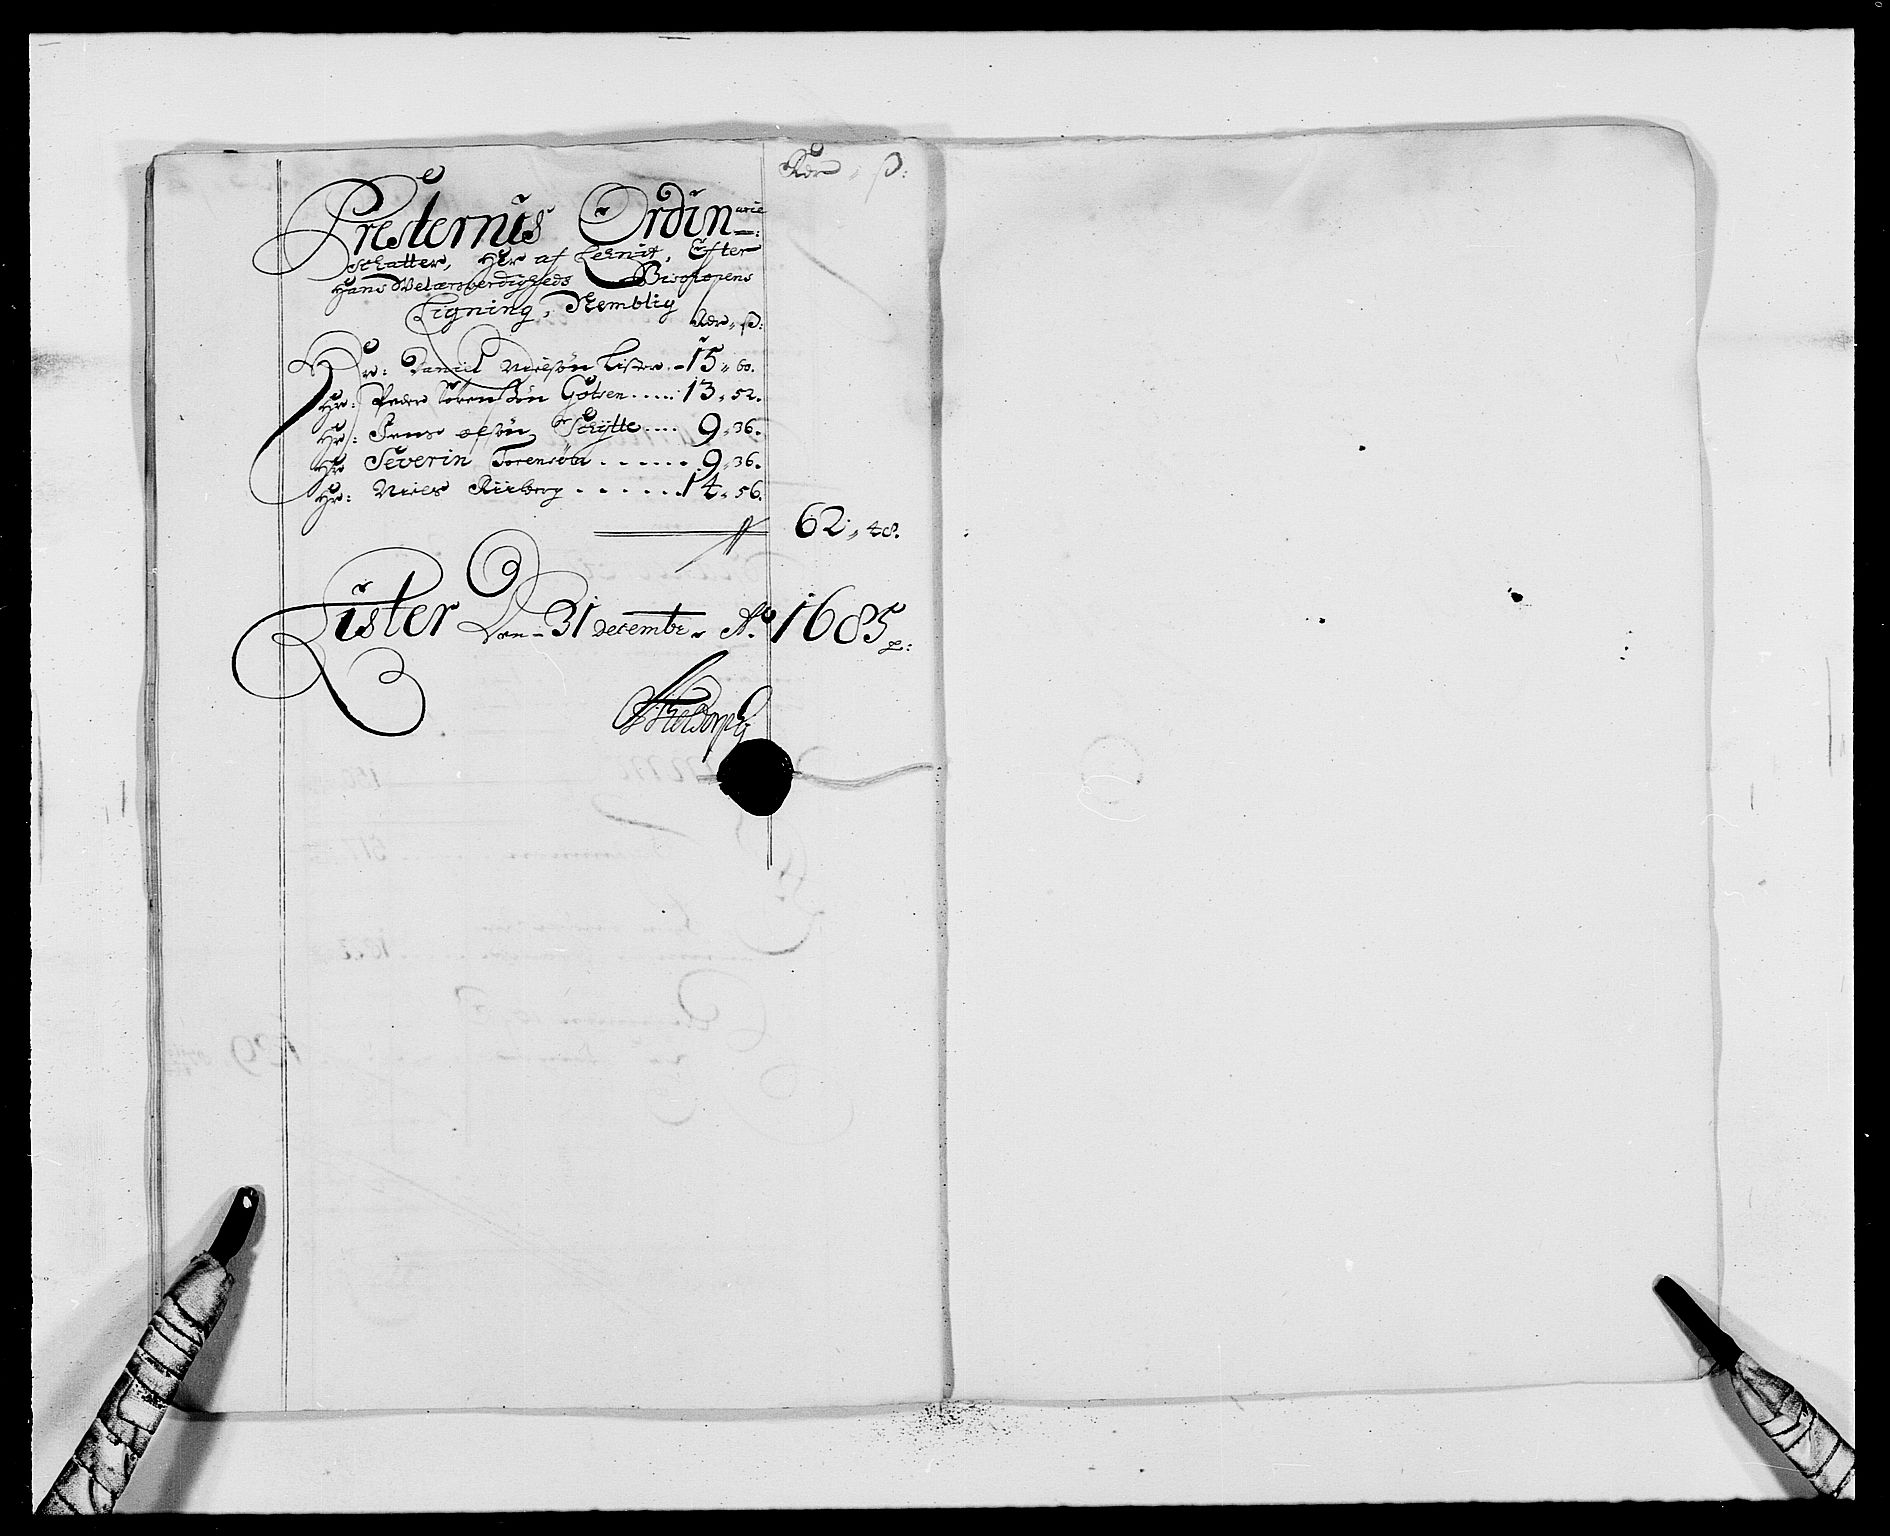 Rdr , ß:
Presternis Ordinarie
Schatter, Her af Lehnit, Efter
Hans Welærverdigheds Bischopens
Ligning, Nemblig
Rdr , ß:
Hr: Daniel Nielsøn Lister .. 15 , 60.
Hr: Peder Sørensøn Gotsen ..... 13 , 52.
Hr: Jens Schytte .... 9 , 36.
Hr Severin Sorensøn ...... 9 , 36.
Hr: Niels Riiberg ...... 14 , 56.
62 , 48.
Lister Den 31 Decembr Ao 1685